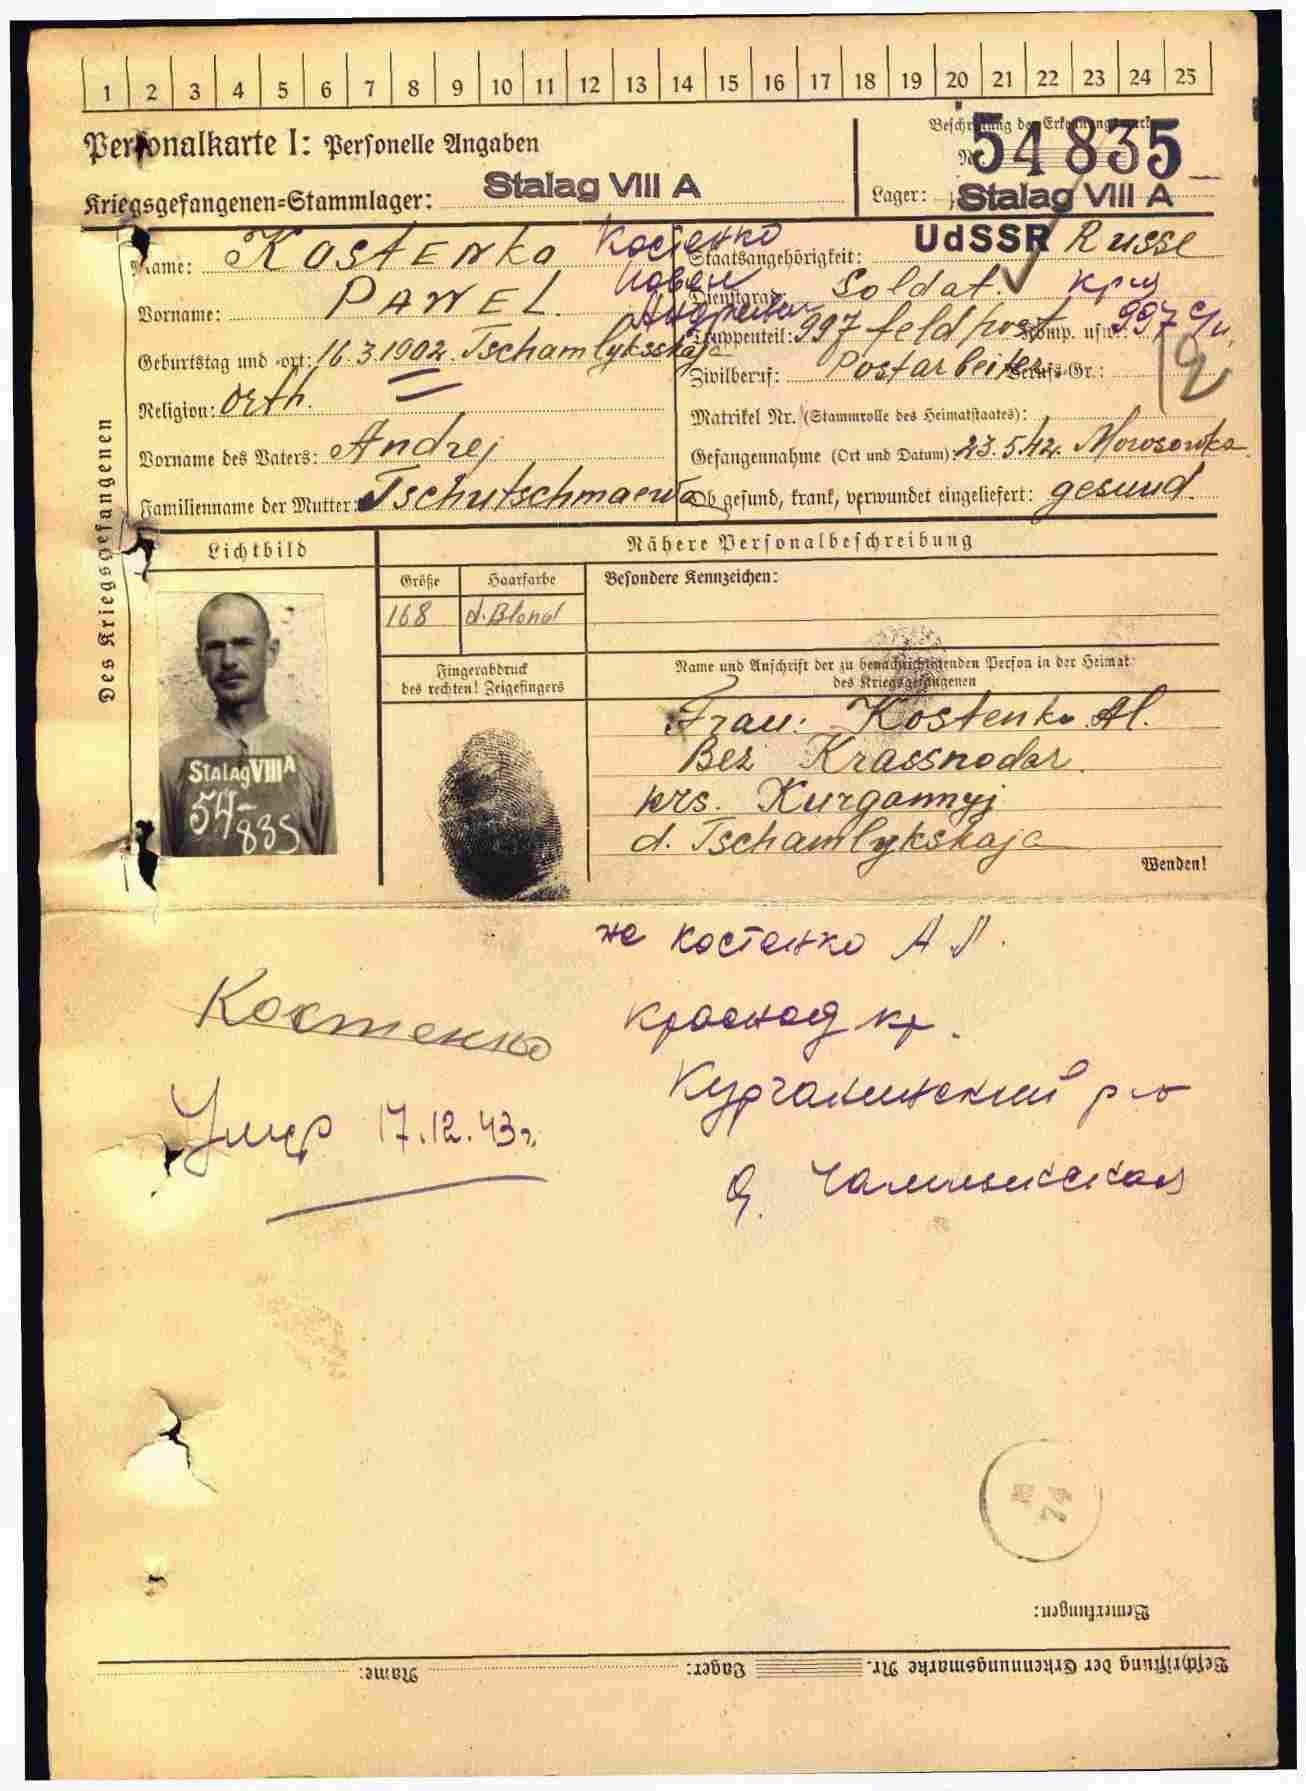 1 2 3 4 5 6 7 8 9 10 11 12 13 14 15 16 17 18 19 20 21 22 23 24 25
Personalkarte I: Personelle Angaben
Kriegsgefangenen-Stammlager: Stalag VIII A
Beschriftung der Erkennungsmarke
Nr. 54835
Lager: Stalag VIII A
Des Kriegsgefangenen
Name: Kostenko Костенко
Vorname: PAWEL. Павел Андреевич
Geburtstag und -ort: 16.3.1902. Tschamlyksskaja
Religion: Orth.
Vorname des Vaters: Andrej
Familienname der Mutter: Tschutschmaewa
Staatsangehörigkeit: UdSSR Russe
Dienstgrad: Soldat. кр-ц
Truppenteil: 997 feldpost Komp. usw.: 997
Zivilberuf: Postarbeiter Berufs-Gr.:
Matrikel Nr. (Stammrolle des Heimatstaates):
Gefangennahme (Ort und Datum): 23.5.42. Morosowka
Ob gesund, krank, verwundet eingeliefert: gesund.
Lichtbild
Nähere Personalbeschreibung
Größe Haarfarbe Besondere Kennzeichen:
168 d. Blond
Fingerabdruck
des rechten! Zeigefingers
Name und Anschrift der zu benachrichtigenden Person in der Heimat
des Kriegsgefangenen
Stalag VIII A
54-
835
Frau: Kostenko Al.
Bez Krassnodar.
krs. Kurgannyj
d. Tschamlykskaja
Wenden!
же Костенко А П.
Костенко
Краснод кр.
Курганинский р-о
Умер 17.12.43г.
д. Чамлыкская
74
Bemerkungen:
Beschriftung der Erkennungsmarke Nr. Lager: Name: